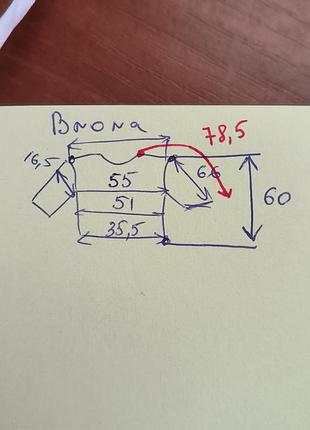 Впола
78,5
16,5
55
66
51
60
35,5